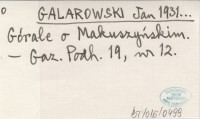 GALAROWSKI Jan 1931...
Górale o Makuszyńskim.
– Gaz. Podh. 19, nr 12.